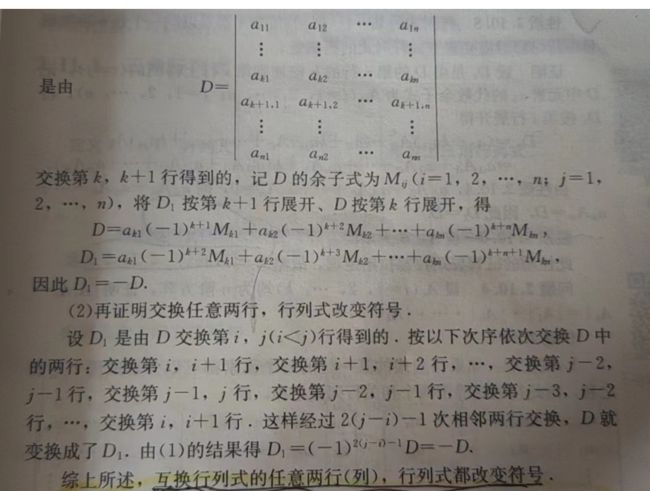 a₁₁ a₁₂ ⋯ a₁ₙ
⋮ ⋮ ⋮
aₖ₁ aₖ₂ ⋯ aₖₙ
是由 D=
aₖ₊₁,₁ aₖ₊₁,₂ ⋯ aₖ₊₁,ₙ
⋮ ⋮ ⋮
aₙ₁ aₙ₂ ⋯ aₙₙ
交换第 k,k+1 行得到的,记 D 的余子式为 Mᵢⱼ(i=1,2,⋯,n;j=1,
2,⋯,n),将 D₁ 按第 k+1 行展开、D 按第 k 行展开,得
D=aₖ₁(-1)ᵏ⁺¹Mₖ₁+aₖ₂(-1)ᵏ⁺²Mₖ₂+⋯+aₖₙ(-1)ᵏ⁺ⁿMₖₙ,
D₁=aₖ₁(-1)ᵏ⁺²Mₖ₁+aₖ₂(-1)ᵏ⁺³Mₖ₂+⋯+aₖₙ(-1)ᵏ⁺ⁿ⁺¹Mₖₙ,
因此 D₁=-D.
(2)再证明交换任意两行,行列式改变符号.
设 D₁ 是由 D 交换第 i,j(i<j)行得到的.按以下次序依次交换 D 中
的两行:交换第 i,i+1 行,交换第 i+1,i+2 行,⋯,交换第 j-2,
j-1 行,交换第 j-1,j 行,交换第 j-2,j-1 行,交换第 j-3,j-2
行,⋯,交换第 i,i+1 行.这样经过 2(j-i)-1 次相邻两行交换,D 就
变换成了 D₁.由(1)的结果得 D₁=(-1)²⁽ʲ⁻ⁱ⁾⁻¹D=-D.
综上所述,互换行列式的任意两行(列),行列式都改变符号.